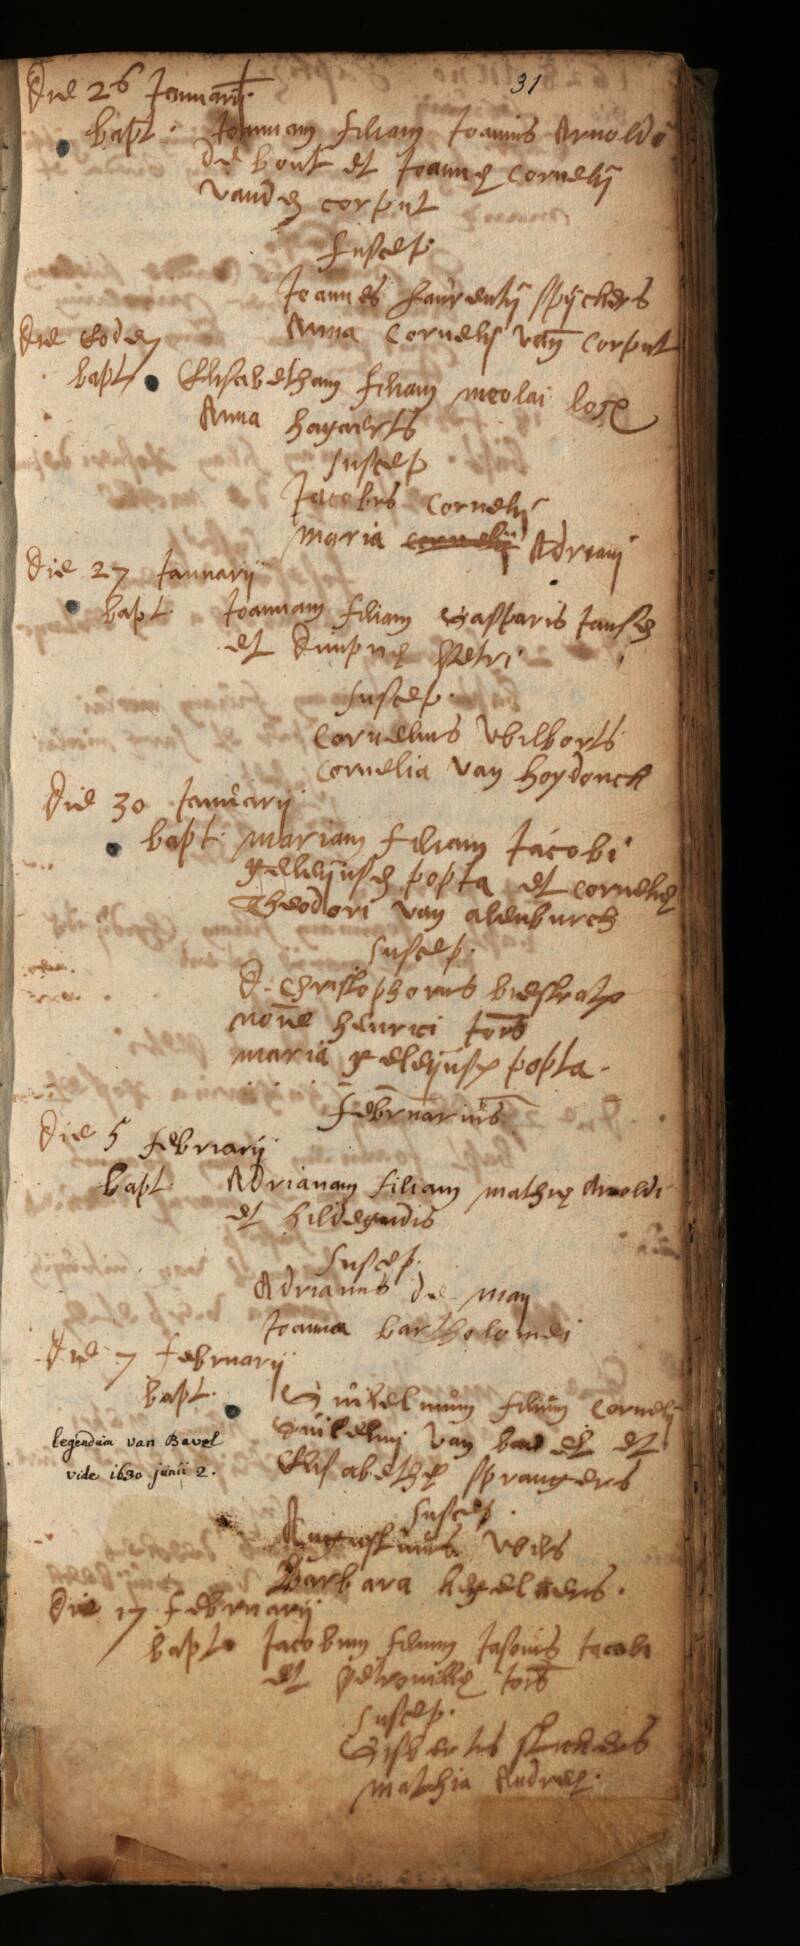 31
Die 26 Januarij
bapt. Joannam filiam Joannis Arnoldi
de bont et Joannę Cornelij
vanden corput
suscep.
Joannes Laurentij spijckers
Anna Cornelij van Corput
Die Eodem
bapt Elisabetham filiam nicolai
Anna hagaerts
suscep
Jacobus Cornelij
Maria cornelij Adriani
Die 27 Januarij
bapt. Joannam filiam Gasparis Jansen
et Dimpnę Petri
suscep.
Cornelius Wilborts
Cornelia van hoydonck
Die 30 Januarij
bapt. mariam filiam Jacobi
popta et Cornelię
Theodori van aldenburch
suscep.
D. Christophorus
nomine henrici
maria popta.
Februarius
Die 5 februarij
bapt. Adrianam filiam mathię Arnoldi
et hildegondis
suscep.
Adrianus de may
Joanna bartholomei
Die 7 februarij
bapt. Guilelmum filium Cornelij
Guilelmi van et
Elisabethę sprangers
legendum van Bavel
vide 1630 junii 2.
suscep.
Augustinus Wils
Barbara
Die 17 februarij
bapt. Jacobum filium Jasonis Jacobi
et Petronillę
suscep.
Gisbertus
Mathia Andreę.